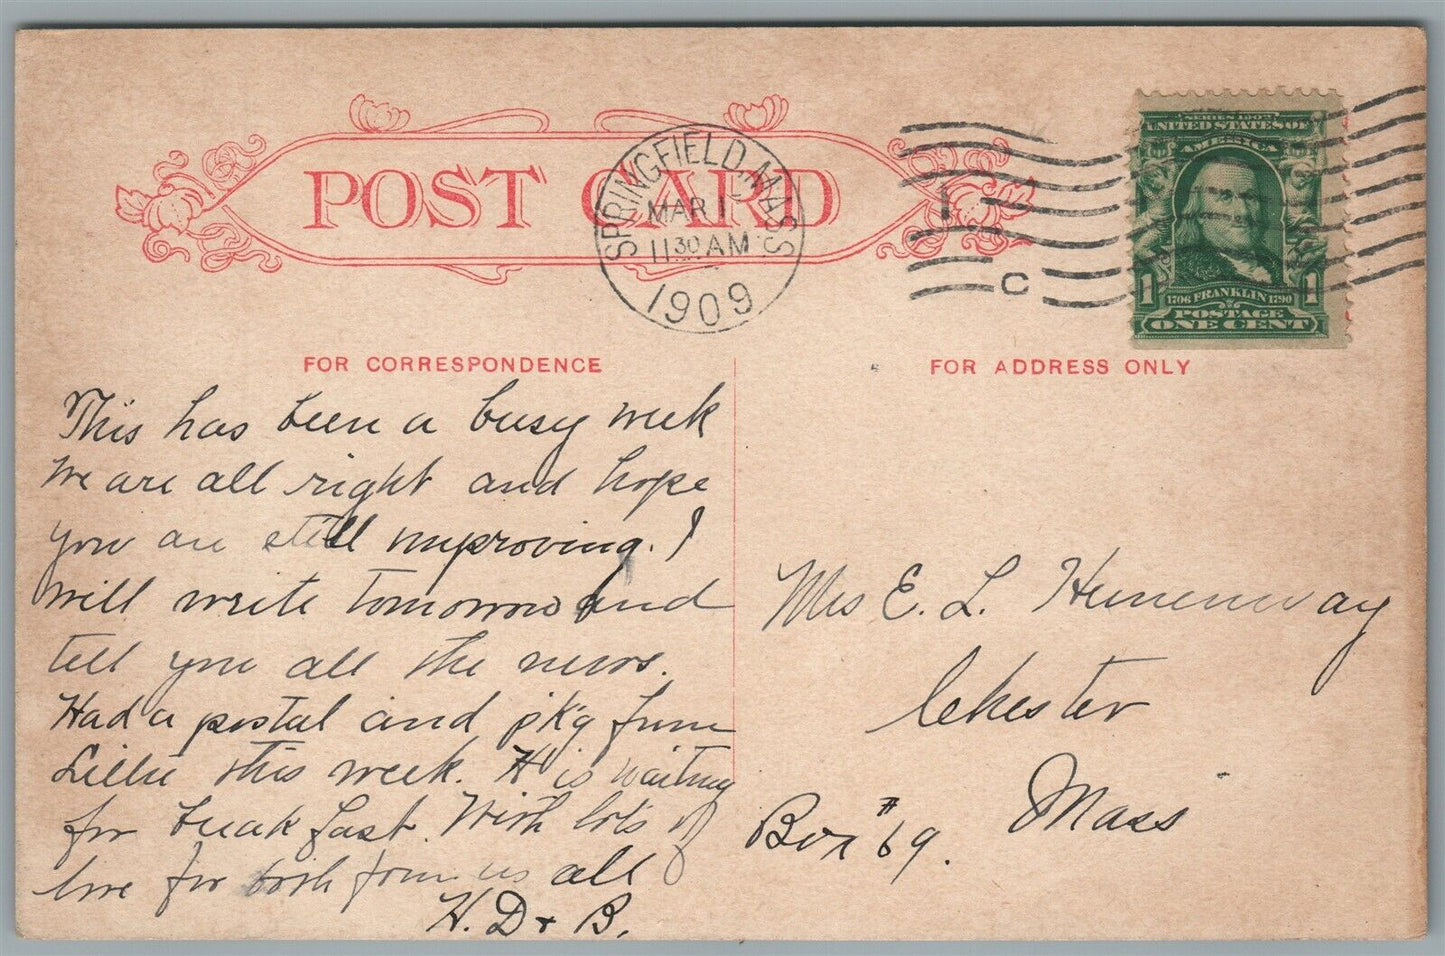 POST CARD
SPRINGFIELD, MASS.
MAR 1
11 30 AM
1909
1
C
SERIES 1902
UNITED STATES OF
AMERICA
1706 FRANKLIN 1790
1 1
POSTAGE
ONE CENT
FOR CORRESPONDENCE
This has been a busy week
We are all right and hope
you are still improving. I
will write tomorrow and
tell you all the news.
Had a postal and pk'g from
Lillie this week. H is waiting
for breakfast. With lots of
love for both from us all
H. D + B.
FOR ADDRESS ONLY
Mrs E. L. Hemenway
Chester
Mass
Box # 69.